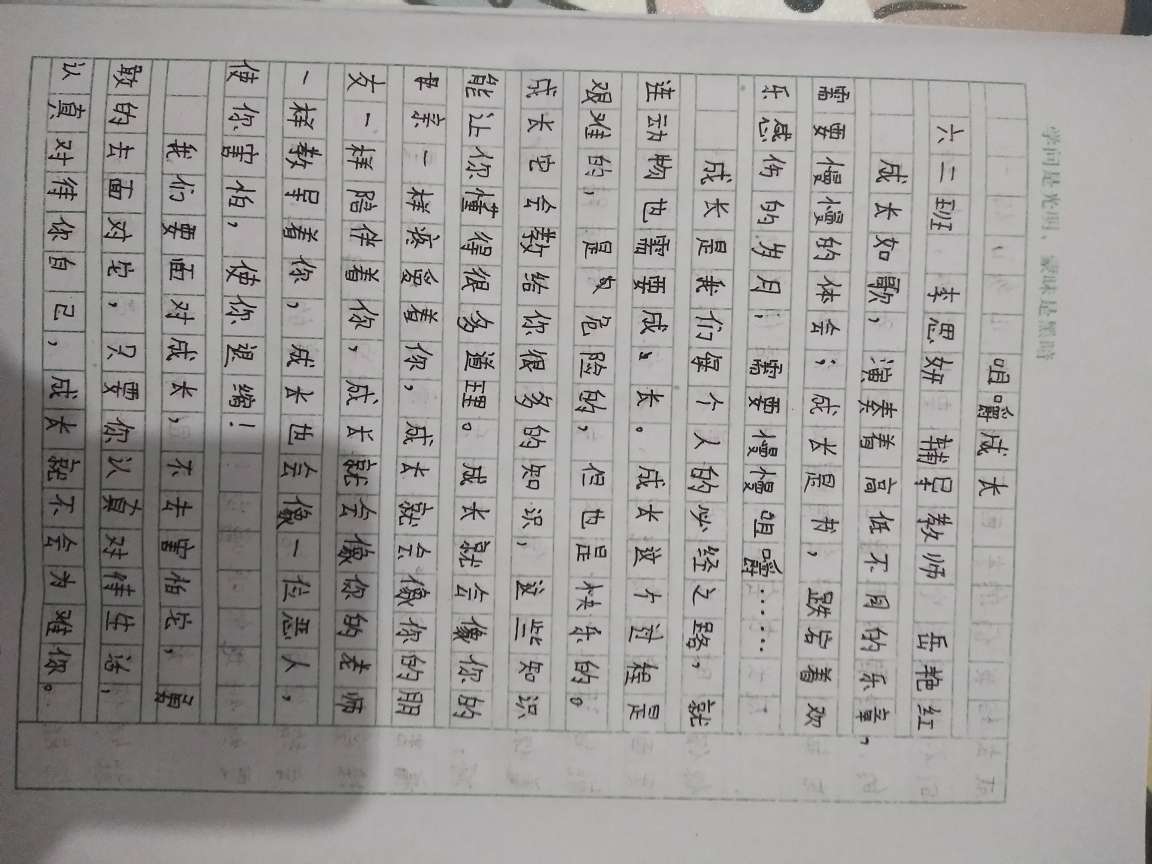 学问是光明，蒙昧是黑暗
咀嚼成长
六二班 李思妍 辅导教师 岳艳红
成长如歌，演奏着高低不同的乐章，
需要慢慢的体会；成长是书，跌宕着欢
乐感伤的岁月，需要慢慢咀嚼……
成长是我们每个人的必经之路，就
连动物也需要成长。成长这个过程是
艰难的，是危险的，但也是快乐的。
成长它会教给你很多的知识，这些知识
能让你懂得很多道理。成长就会像你的
母亲一样疼爱着你，成长就会像你的朋
友一样陪伴着你，成长就会像你的老师
一样教导着你，成长也会像一位恶人，
使你害怕，使你退缩！
我们要面对成长，不去害怕它，勇
敢的去面对它，只要你认真对待生活，
认真对待你自己，成长就不会为难你。